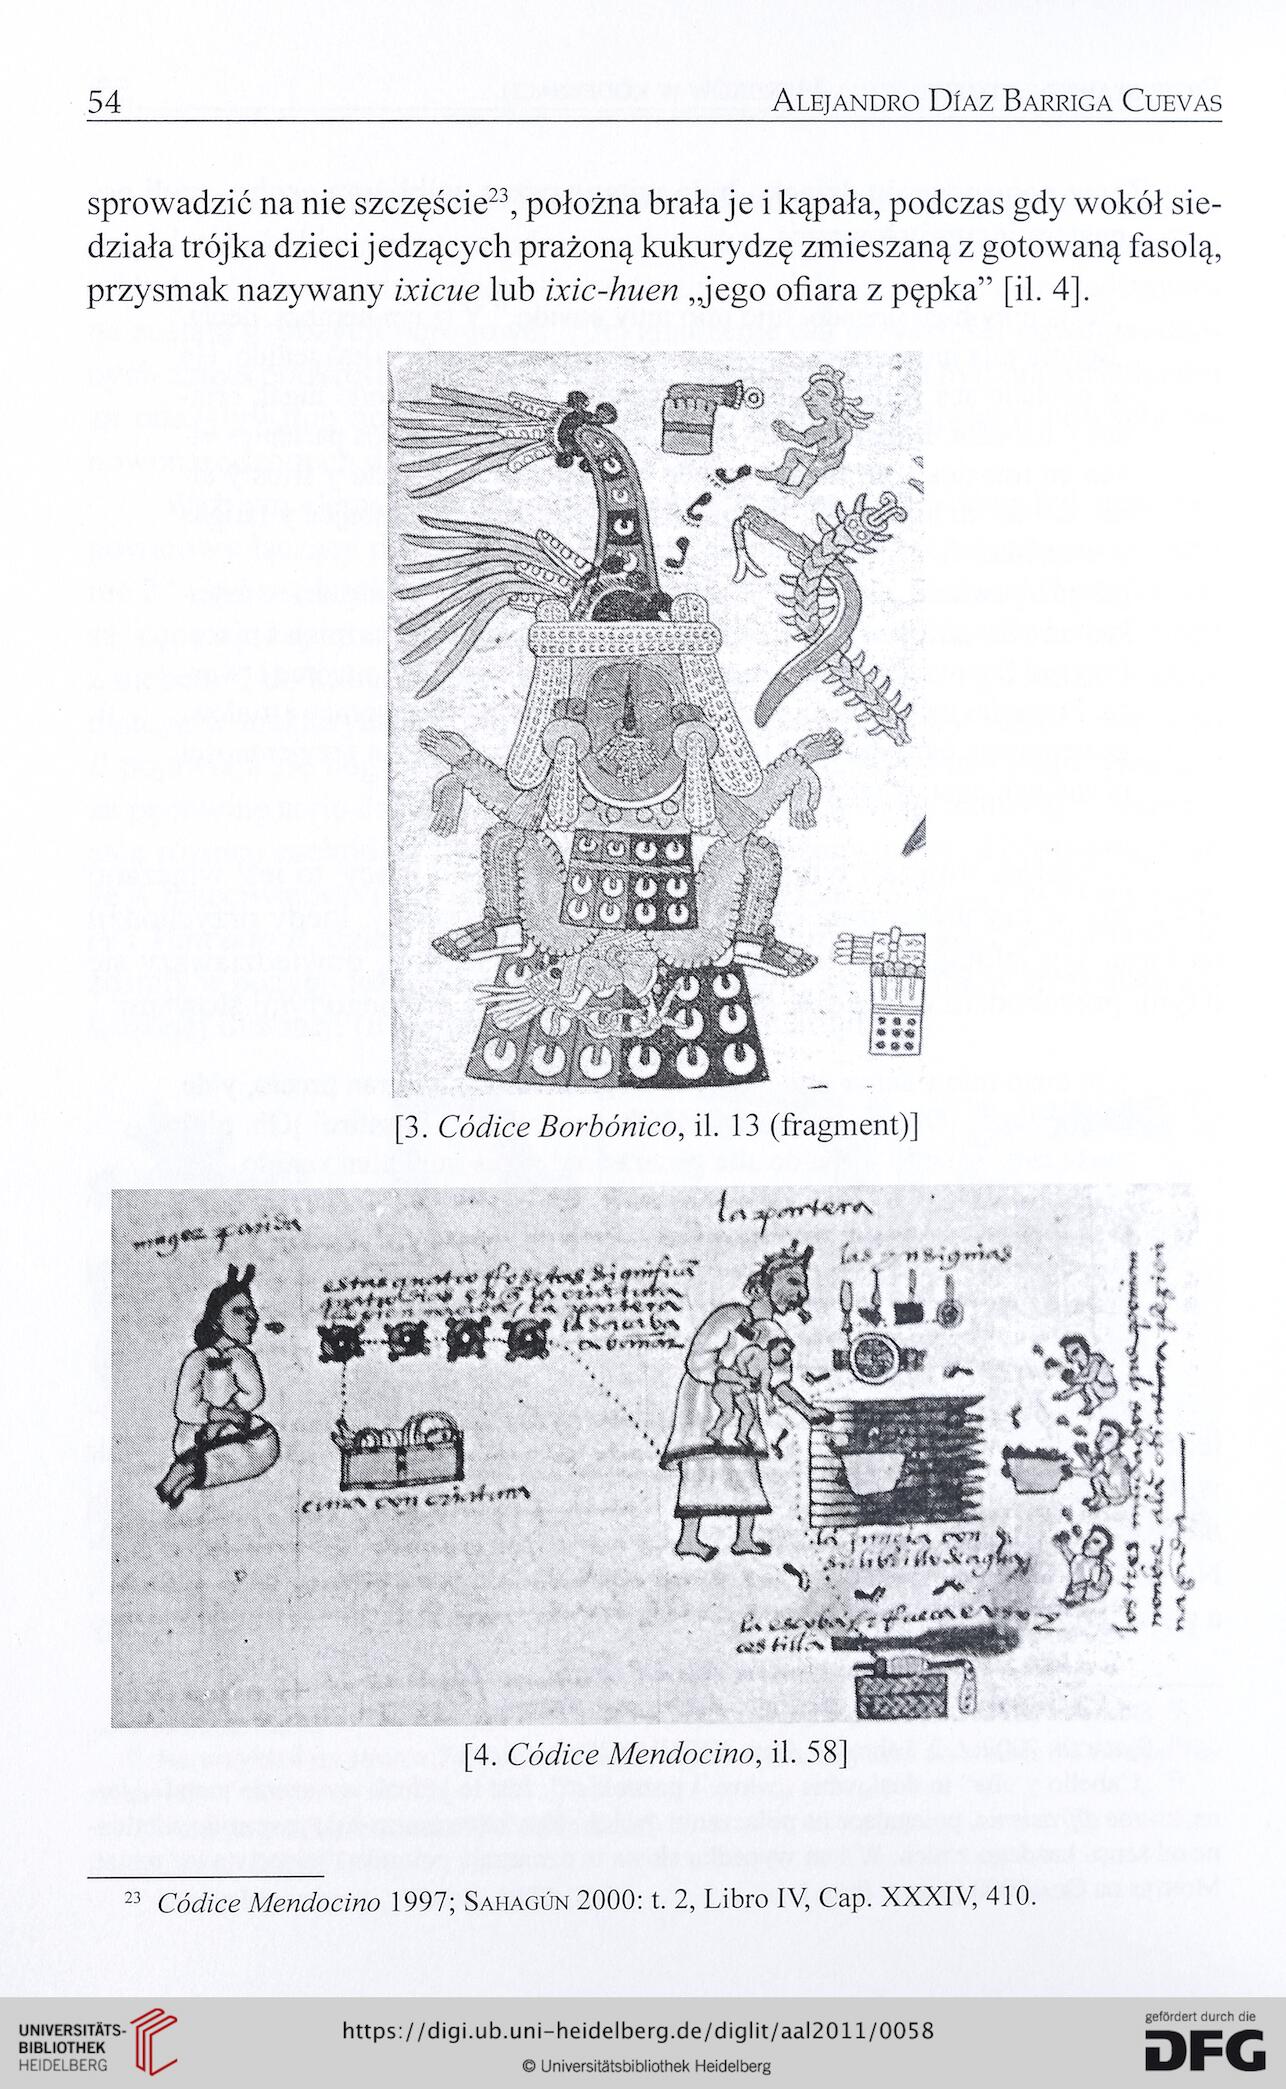 54
ALEJANDRO DÍAZ BARRIGA CUEVAS
sprowadzić na nie szczęście²³, położna brała je i kąpała, podczas gdy wokół sie-
działa trójka dzieci jedzących prażoną kukurydzę zmieszaną z gotowaną fasolą,
przysmak nazywany ixicue lub ixic-huen „jego ofiara z pępka” [il. 4].
[3. Códice Borbónico, il. 13 (fragment)]
muger parida
la partera
las ynsignias
estas quatro
la partera
cuna con criatura
los tres
la escoba
[4. Códice Mendocino, il. 58]
²³ Códice Mendocino 1997; SAHAGÚN 2000: t. 2, Libro IV, Cap. XXXIV, 410.
UNIVERSITÄTS-
BIBLIOTHEK
HEIDELBERG
https://digi.ub.uni-heidelberg.de/diglit/aal2011/0058
© Universitätsbibliothek Heidelberg
gefördert durch die
DFG